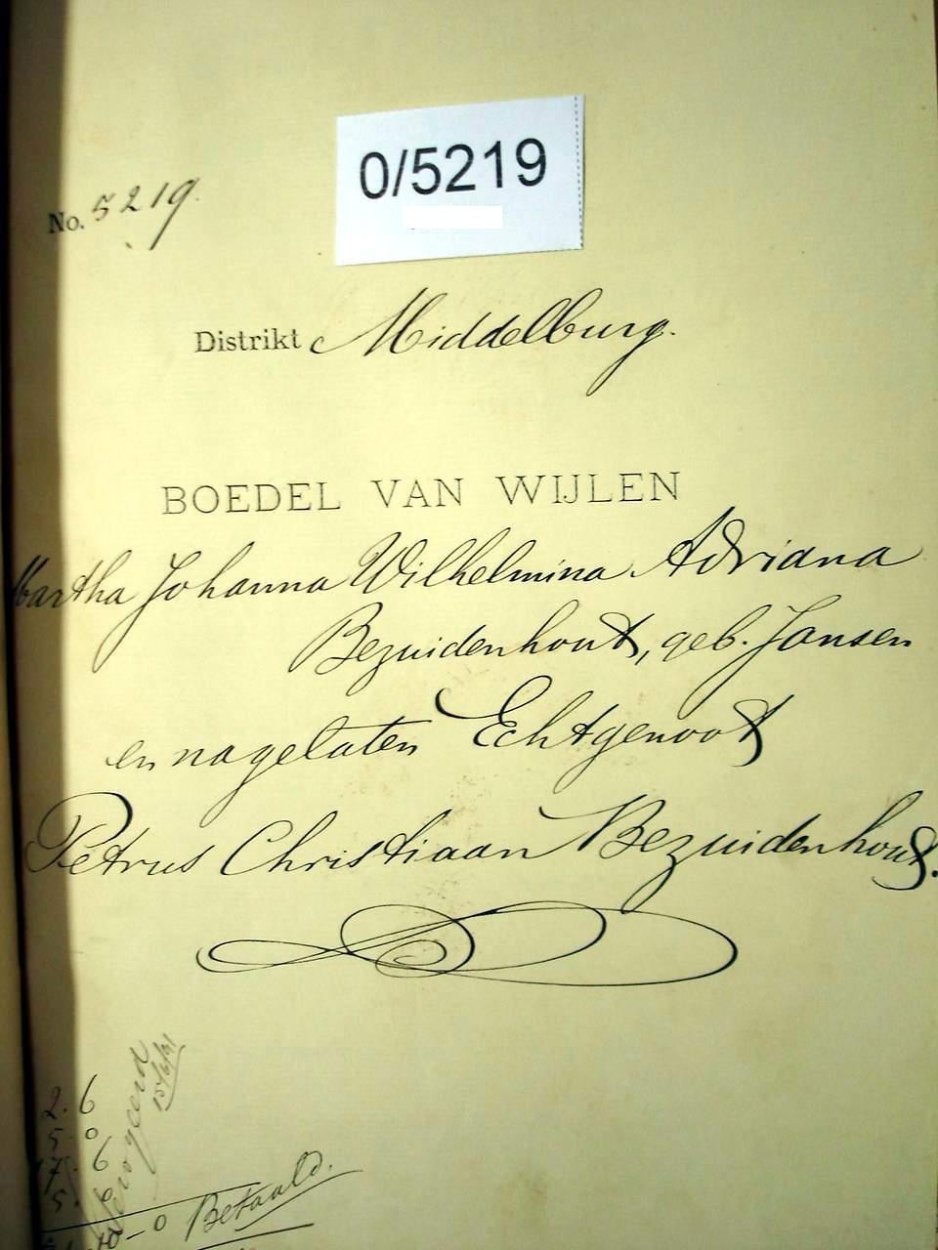 0/5219
No. 5219.
Distrikt Middelburg.
BOEDEL VAN WIJLEN
Martha Johanna Wilhelmina Adriana
Bezuidenhout, geb. Jansen
en nagelaten Echtgenoot
Petrus Christiaan Bezuidenhout.
2. 6
5 0
7. 6
5.
0 Betaald.